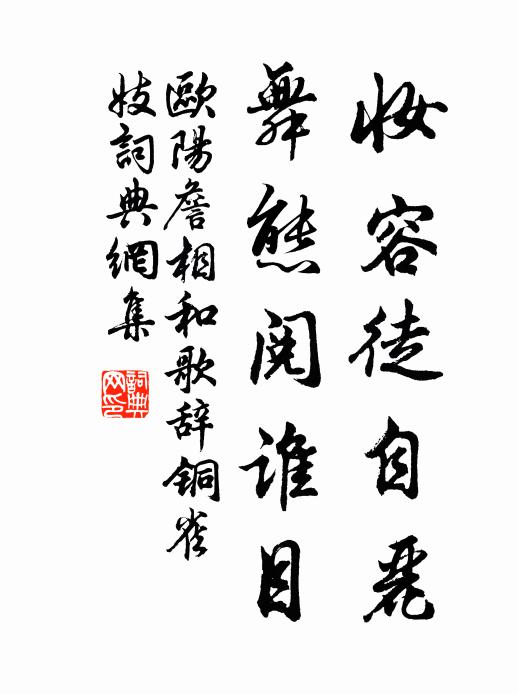 妆容徒自麗
舞態閱誰目
歐陽詹相和歌辞銅雀
妓詞典網集
詞典
网印